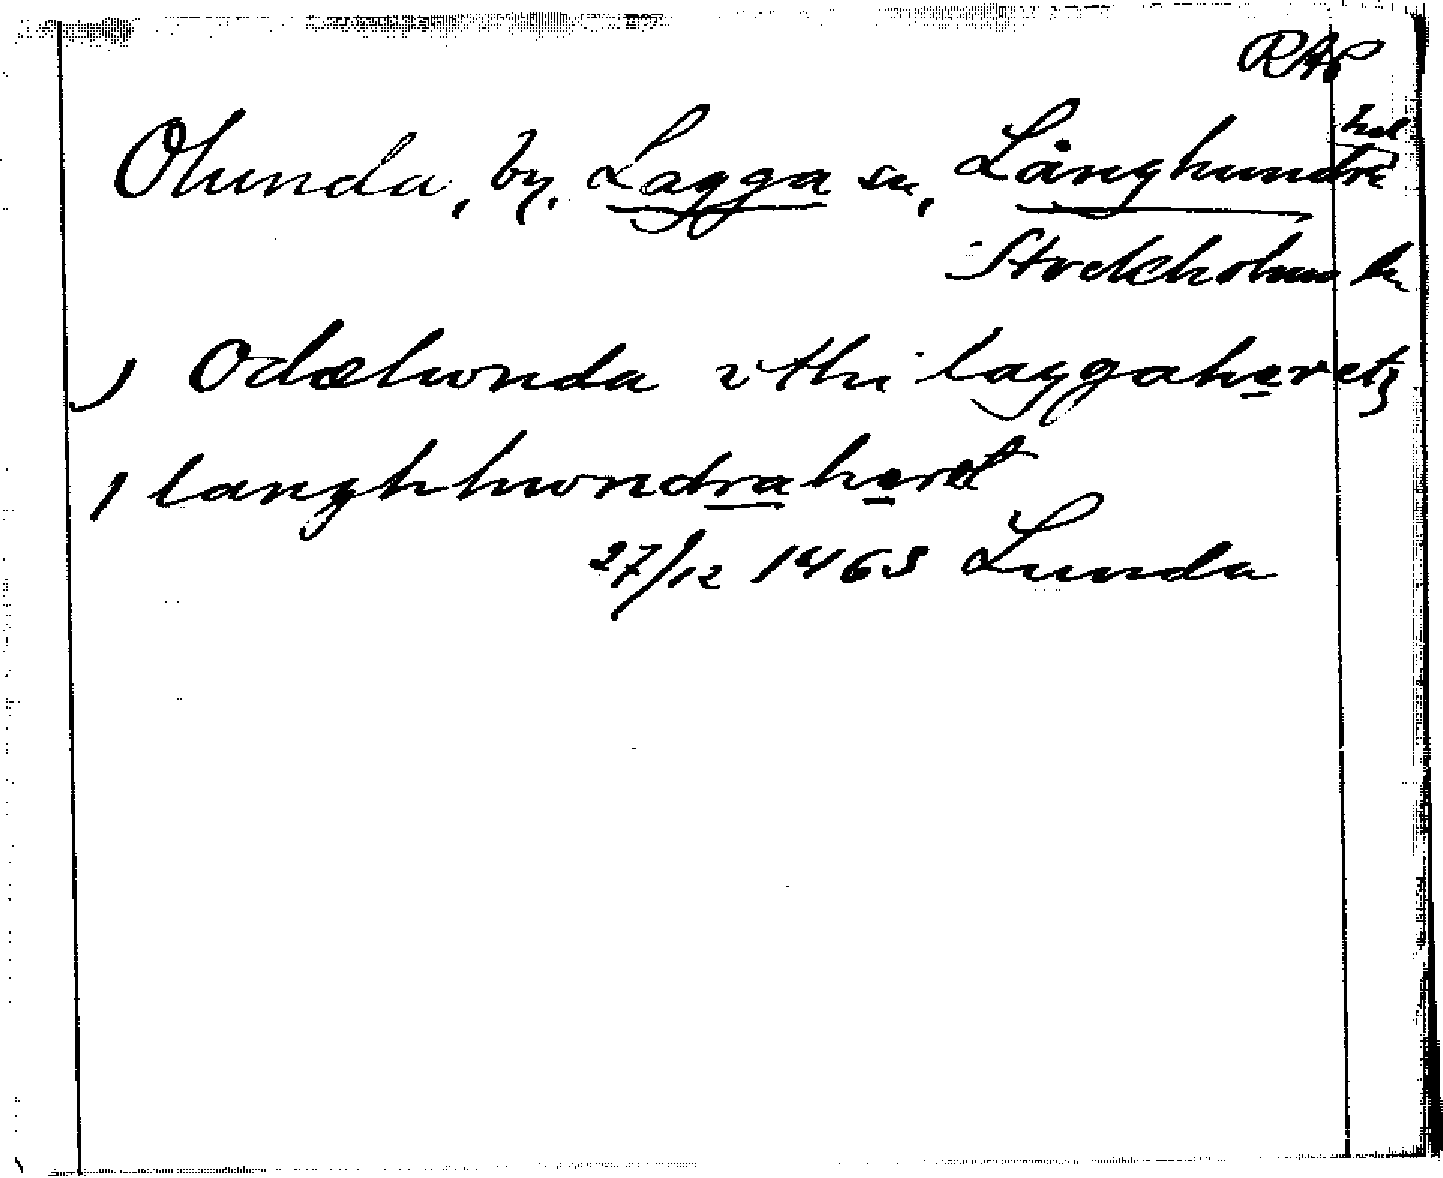 RAP
Olunda, by, Lagga sn, Långhundra hd
Stockholms län
) Odælwnda i thn laggahæretz
) langhhwndrahæret
27/12 1465 Lunda